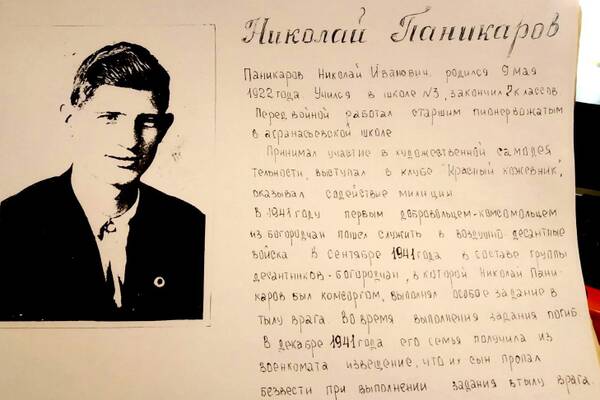 Николай Паникаров
Паникаров Николай Иванович родился 9 мая
1922 года. Учился в школе №3, закончил 7 классов
Перед войной работал старшим пионервожатым
в афанасьевской школе
Принимал участие в художественной самодея
тельности, выступал в клубе "Красный кожевник",
оказывал содействие милиции
В 1941 году первым добровольцем-комсомольцем
из богородчан пошел служить в воздушно-десантные
войска в сентябре 1941 года в составе группы
десантников-богородчан, в которой Николай Пани-
каров был комсоргом, выполнял особое задание в
тылу врага. Во время выполнения задания погиб
В декабре 1941 года его семья получила из
военкомата извещение, что их сын пропал
безвести при выполнении задания в тылу врага.